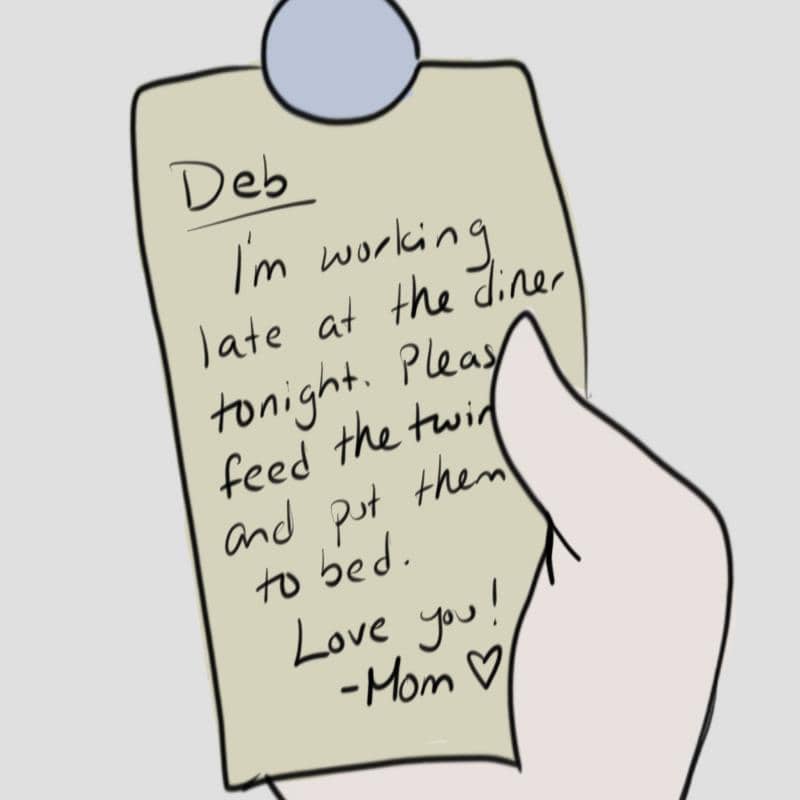 Deb
I'm working
late at the diner
tonight. Pleas
feed the twin
and put them
to bed.
Love you!
-Mom ♡